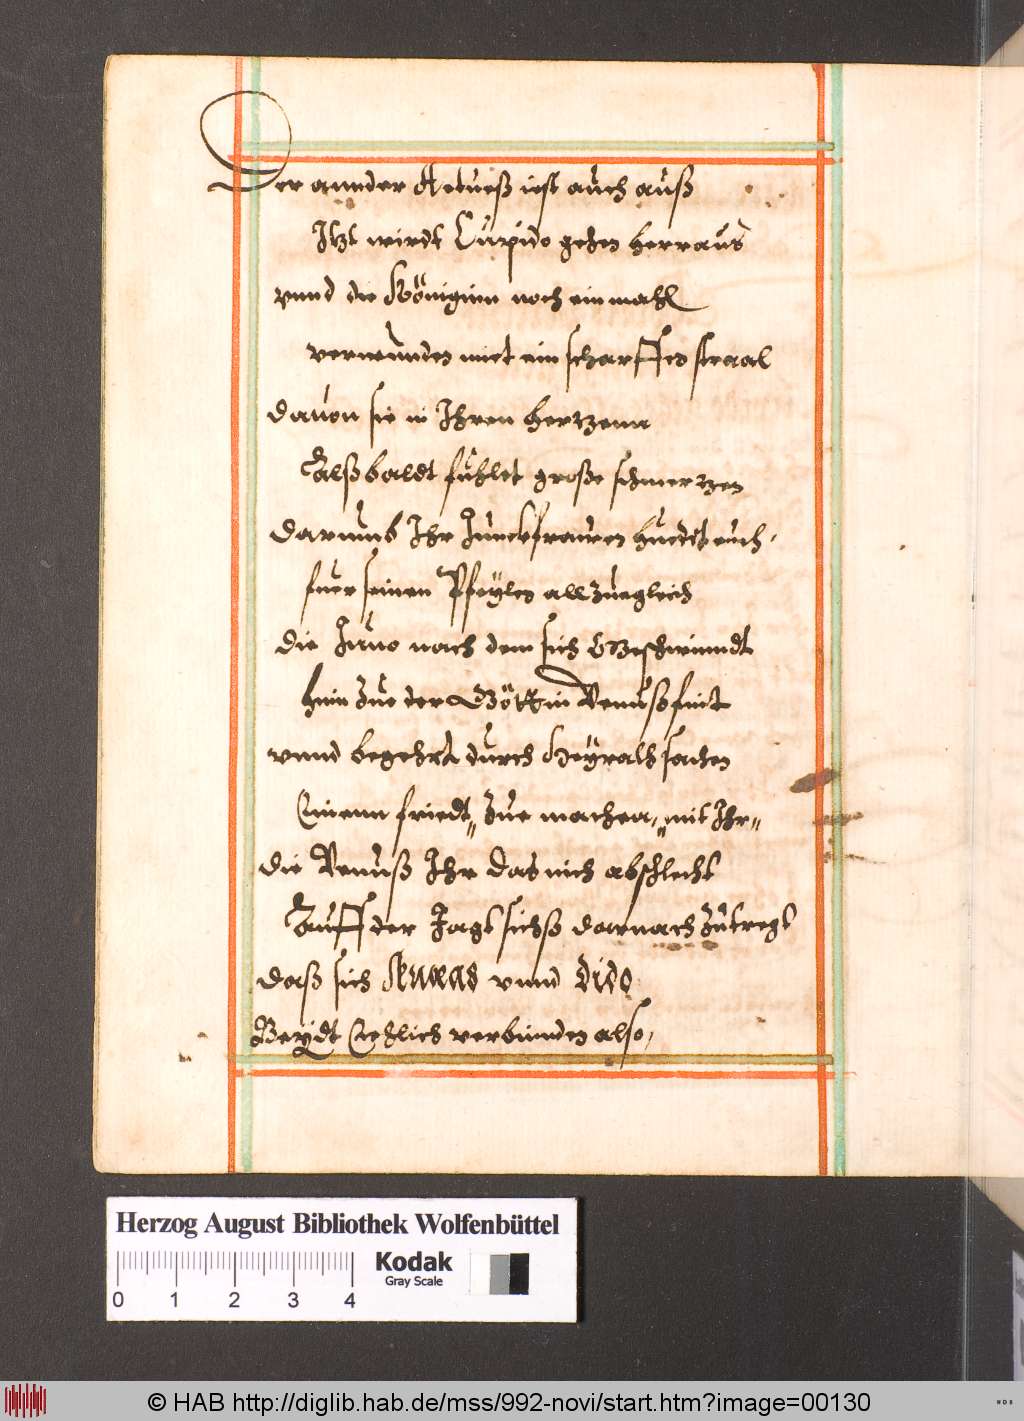 Der annder Actueß iest auch auß
Itzt wirdt Cupido gehen herraus
vnnd die Königinn noch ein mahl
verwunden miet ein scharffes straal
dauon sie in Ihren hertzenn
Alßbaldt fühlet große schmertzen
darumb Ihr Junckfrauen huettet euch
fuer seinen Pfeylen all zuegleich
die Juno nach dem sich Geschwinndt
hinn zue der Göttin Venuß fint
vnnd begehrt durch Heyrath sachen
Einenn friedt„ zue machen„ „mit Ihr„
die Venuß Ihr das nich abschlecht
Auff der Jagt sichß darnach zutregt
daß sich Aeneas vnnd Dido
Beydt Eehlich verbinden also,
Herzog August Bibliothek Wolfenbüttel
Kodak
Gray Scale
0 1 2 3 4
© HAB http://diglib.hab.de/mss/992-novi/start.htm?image=00130